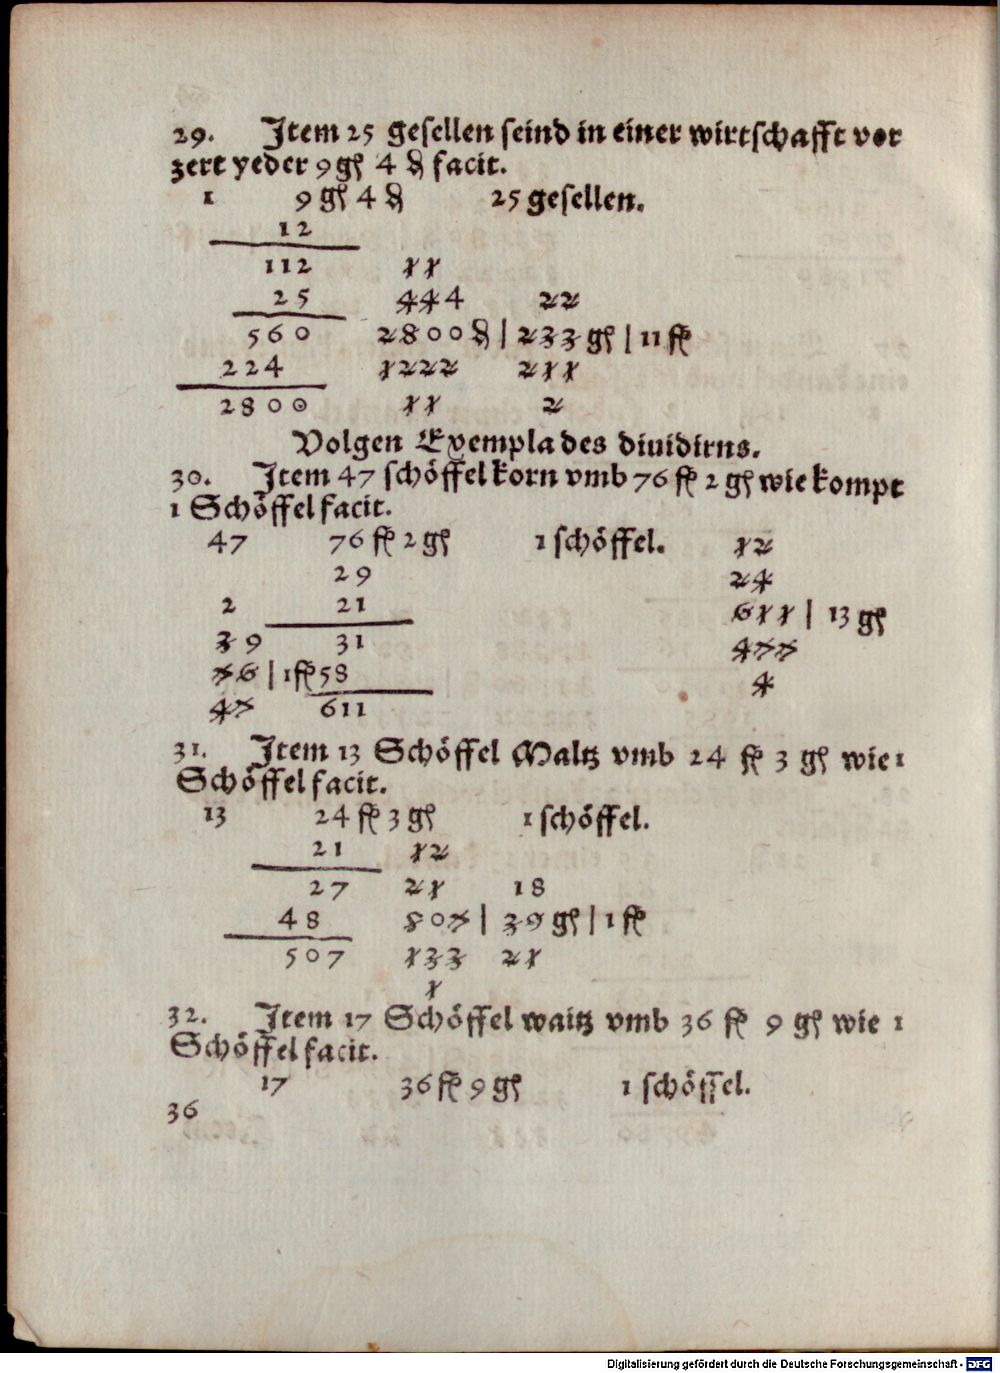 29. Item 25 gesellen seind in einer wirtschafft vor
zert yeder 9 gſ 4 ₰ facit.
1 9 gſ 4 ₰ 25 gesellen.
12
112 11
25 444 22
560 2800 ₰ | 233 gſ | 11 fſ
224 1222 211
2800 11 2
Volgen Exempla des diuidirns.
30. Item 47 schöffel korn vmb 76 fſ 2 gſ wie kompt
1 Schöffel facit.
47 76 fſ 2 gſ 1 schöffel. 12
29 24
2 21 611 | 13 gſ
39 31 477
76 | 1 fſ 58 4
47 611
31. Item 13 Schöffel Maltz vmb 24 fſ 3 gſ wie 1
Schöffel facit.
13 24 fſ 3 gſ 1 schöffel.
21 12
27 21 18
48 507 | 39 gſ | 1 fſ
507 133 21
1
32. Item 17 Schöffel waitz vmb 36 fſ 9 gſ wie 1
Schöffel facit.
17 36 fſ 9 gſ 1 schöffel.
36
Digitalisierung gefördert durch die Deutsche Forschungsgemeinschaft - DFG